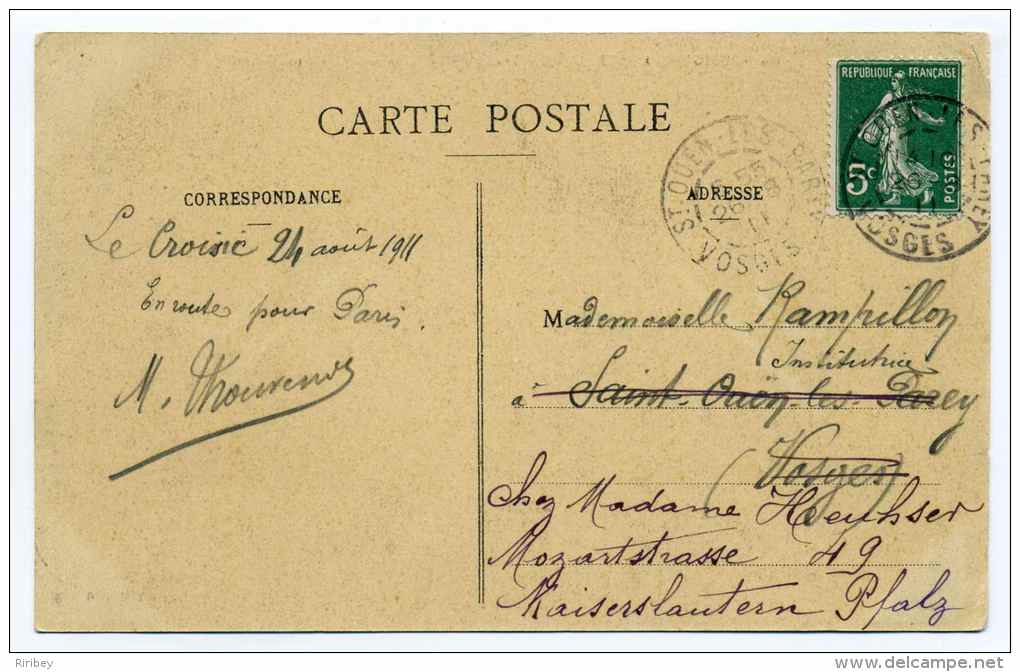 CARTE POSTALE
CORRESPONDANCE
Le Croisic 24 août 1911
En route pour Paris.
M. Thouvenot
ADRESSE
RÉPUBLIQUE FRANÇAISE
5c
POSTES
ST OUEN-LES-PAREY
26 - 8
11
VOSGES
OUEN-LES-PAREY
26
11
VOSGES
Mademoiselle Rampillon
Institutrice
à Saint-Ouën-les-Parey
(Vosges)
Chez Madame
Mozartstrasse 49
Kaiserslautern Pfalz
Riribey
www.delcampe.net